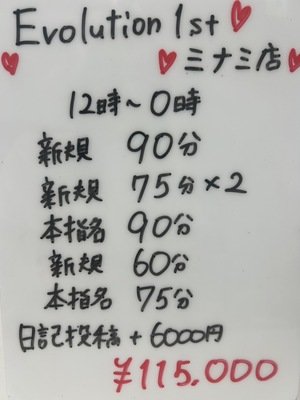 Evolution 1st
ミナミ店
12時〜0時
新規 90分
新規 75分×2
本指名 90分
新規 60分
本指名 75分
日記投稿 + 6000円
¥115.000